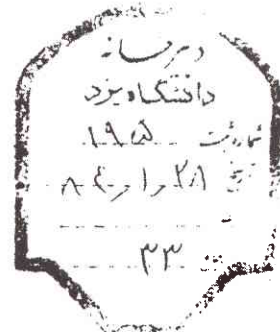 دبیرخانه
دانشگاه یزد
شماره ثبت ۱۹۵
تاریخ
۳۳